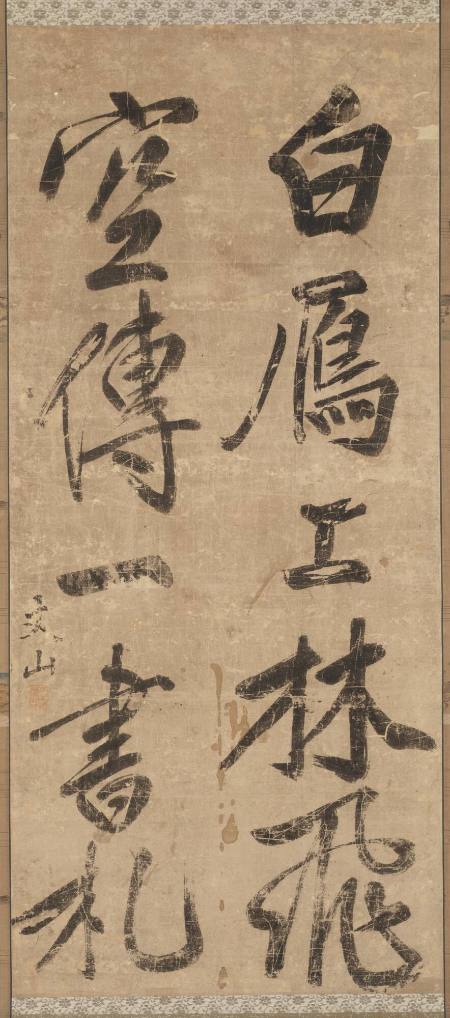 白鴈上林飛
空傳一書札